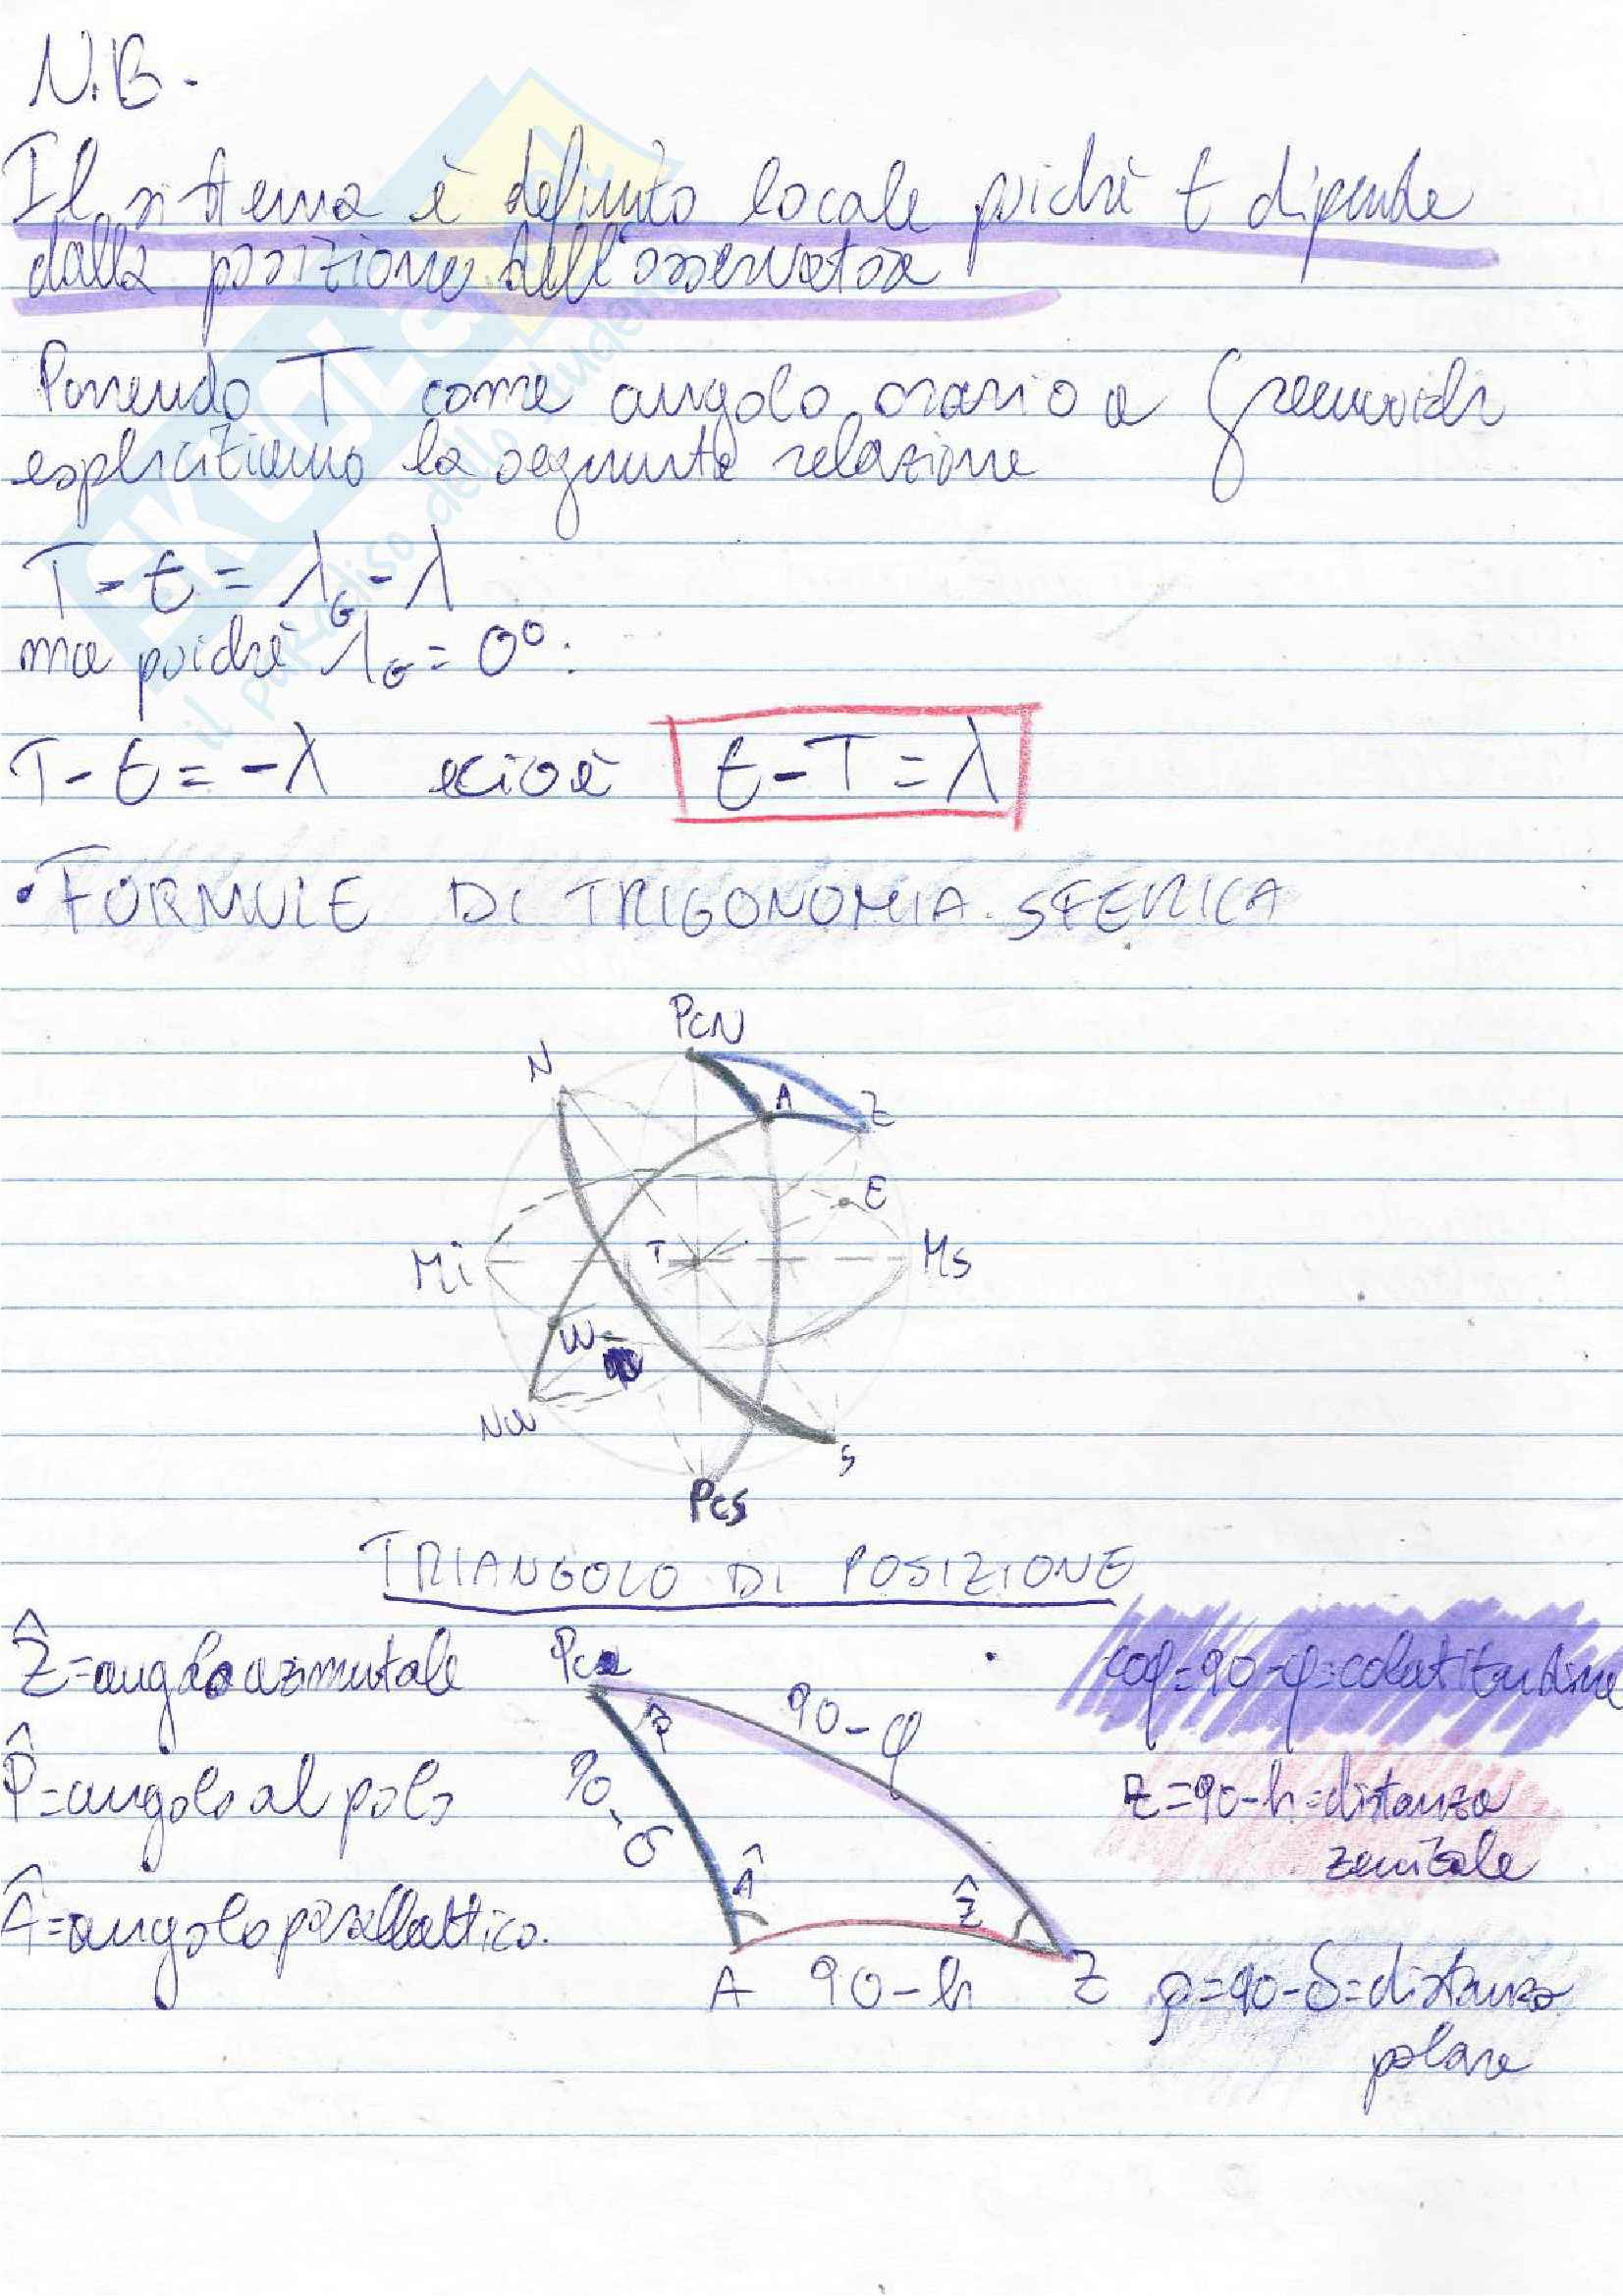 N.B.
Il sistema è definito locale poichè t dipende
dalla posizione dell'osservatore
Ponendo T come angolo orario a Greenwich
esplicitiamo la seguente relazione
T-t=λG-λ
ma poichè λG=0°:
T-t=-λ e cioè t-T=λ
•FORMULE DI TRIGONOMIA SFERICA
PCN
N
A
Z
E
Mi
T
Ms
W
Na
S
PCS
TRIANGOLO DI POSIZIONE
Ẑ=angolo azimutale
P̂=angolo al polo
Â=angolo parallattico.
90-φ
90-δ
Â
Ẑ
A 90-h Z
coφ=90-φ=colatitudine
z=90-h=distanza
zenitale
p=90-δ=distanza
polare
SKUOLA
il paradiso dello studente